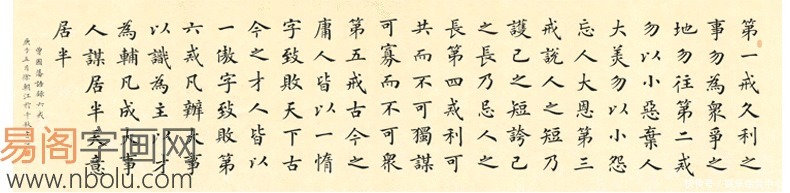 第一戒久利之
事勿為眾爭之
地勿往第二戒
勿以小惡棄人
大美勿以小怨
忘人大恩第三
戒說人之短乃
護己之短誇己
之長乃忌人之
長第四戒利可
共而不可獨謀
可寡而不可眾
第五戒古今之
庸人皆以一惰
字致敗天下古
今之才人皆以
一傲字致敗第
六戒凡辦大事
以識為主以才
為輔凡成大事
人謀居半天意
居半
曾國藩語錄六戒
庚子五月徐朝江於千秋
易阁字画网
www.nbolu.com